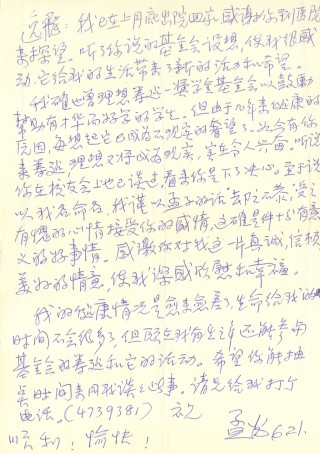 远聪：我已在上月底出院回家，感谢你到医院
来探望。听了你说的基金会设想，使我很感
动，它给我的生活带来了新的活力和希望。
我确也曾理想筹建一奖学基金会以鼓励
帮助有才华而好学的学生。但由于几年来健康的
原因，每想起它已成为不现实的奢望了。如今有你
来筹建，理想又得成为现实，实在令人兴奋。听说
你在校友会上也已谈过，看来你是下了决心。至于说
以我名命名，我谨以孟子的话"却之不恭，受之
有愧"的心情接受你的盛情，这确是件十分有意
义的好事情。感谢你对我这一片真诚、信赖
美好的情意，使我深感欣慰和幸福。
我的健康情况是愈来愈差了，生命给我的
时间不会很多了，但愿在我有生之年还能参与
基金会的筹建和它的活动。希望你能抽
点时间来同我谈谈此事。请先给我打个
电话。(4739381) 祝
顺利！愉快！ 孟 6.21.